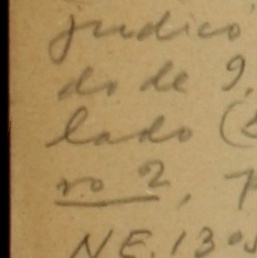 judico
do de 9,
lado (
no 2, p
NE. 130s